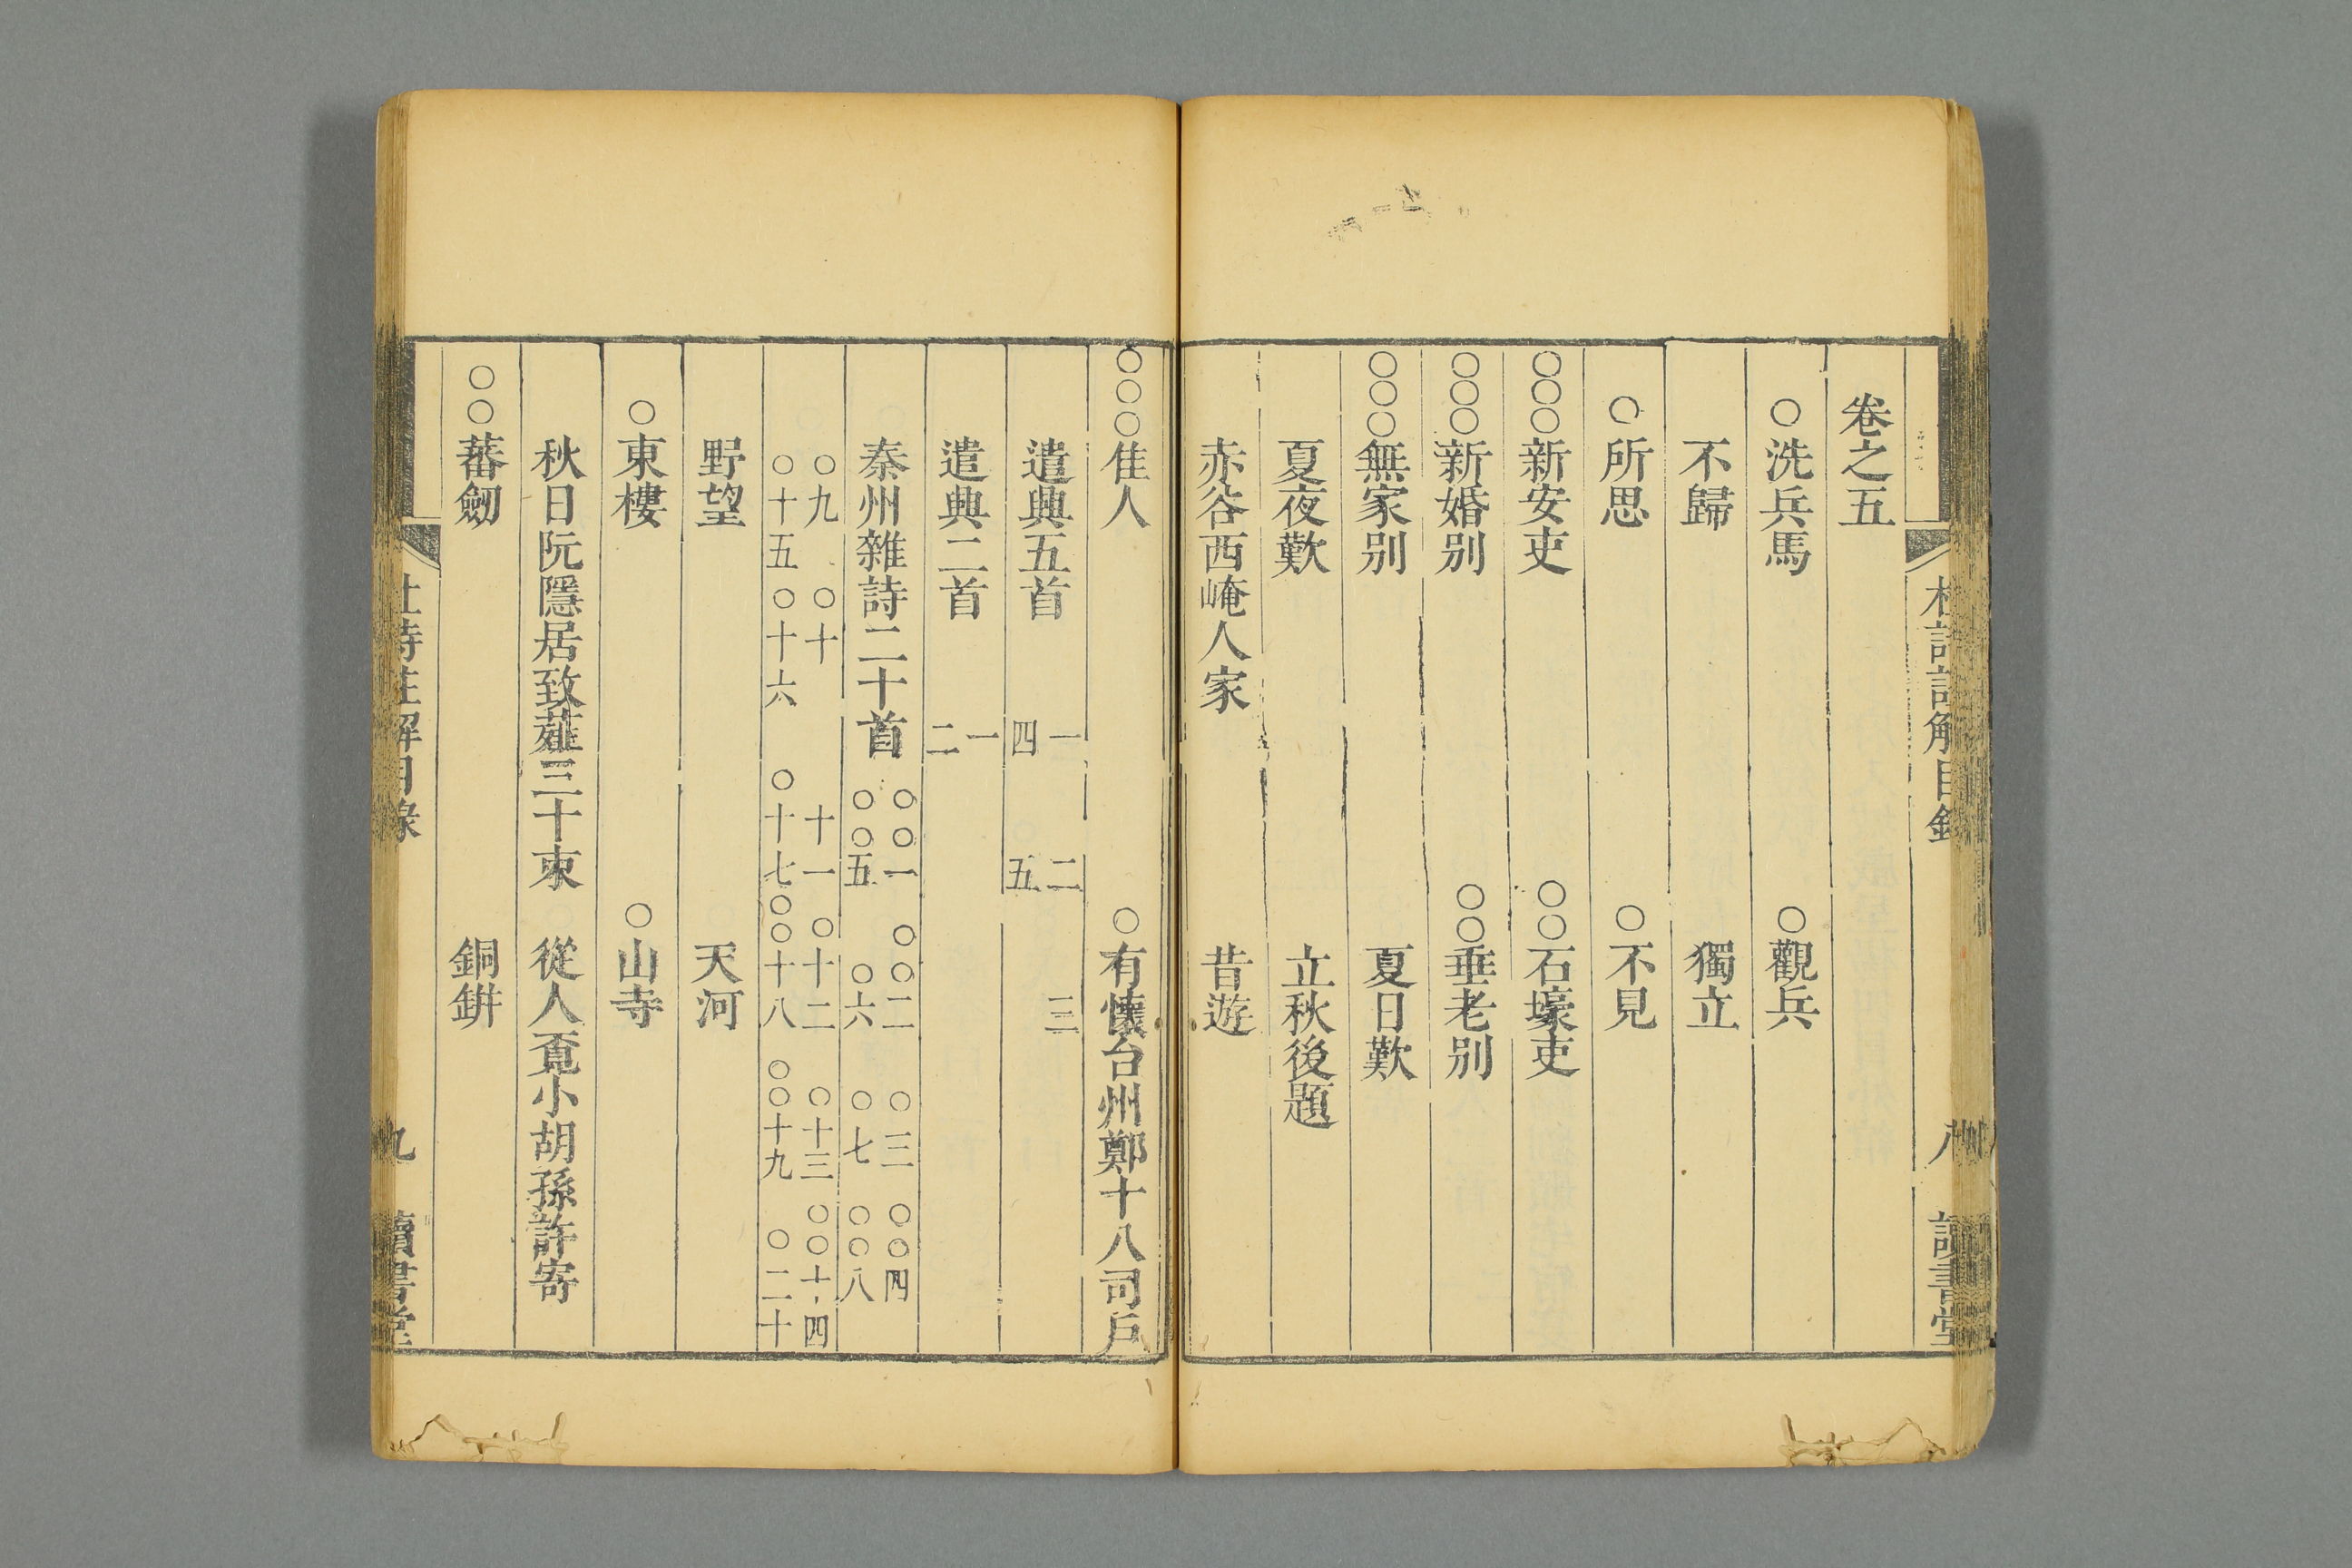 卷之五
○洗兵馬　○觀兵
不歸　獨立
○所思　○不見
○○○新安吏　○○石壕吏
○○○新婚别　○○垂老别
○○○無家别　夏日歎
夏夜歎　立秋後題
赤谷西崦人家　昔遊
杜詩註解目錄　八　讀書堂
○○○佳人　○有懷台州鄭十八司戶
遣興五首　一　二　三
四　五
遣興二首　一
二
秦州雜詩二十首　○○一　○○二　○三　○○四
○○五　○六　○七　○○八
○九　○十　十一　○十二　○十三　○○十四
○十五　○十六　○十七　○○十八　○○十九　○二十
野望　天河
○東樓　○山寺
秋日阮隱居致薤三十束　從人覔小胡孫許寄
○○蕃劒　銅缾
杜詩註解目錄　九　讀書堂